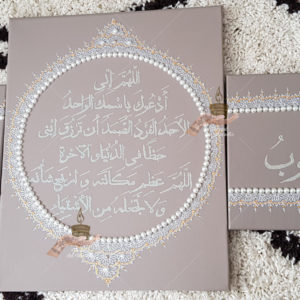 اللهم إني
أدعوك باسمك الواحد
الأحد الفرد الصمد أن ترزق ابني
حظا في الدنيا والآخرة
اللهم عظم مكانته وارفع شأنه
ولا تجعله من الأشقياء